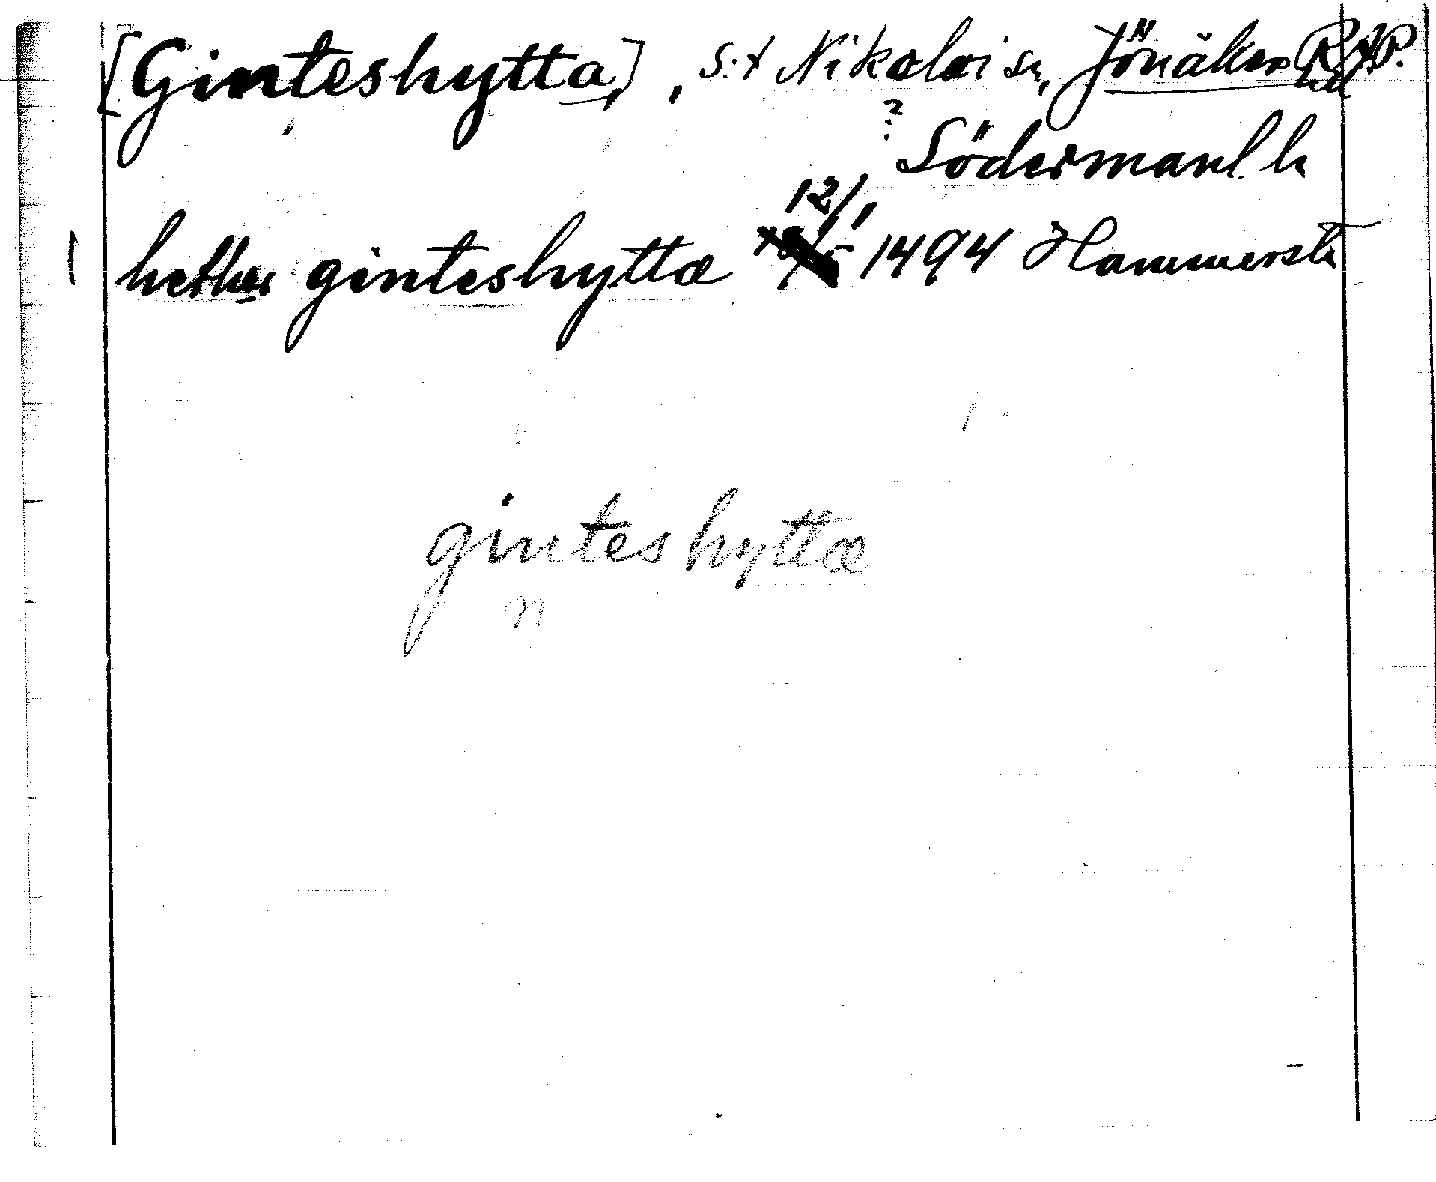 [Ginteshytta], S:t Nikolai sn, Jönåkers hd RAP.
? Södermanl. l.
12/1
hether ginteshyttæ 1494 Hammersta
ginteshyttæ
n